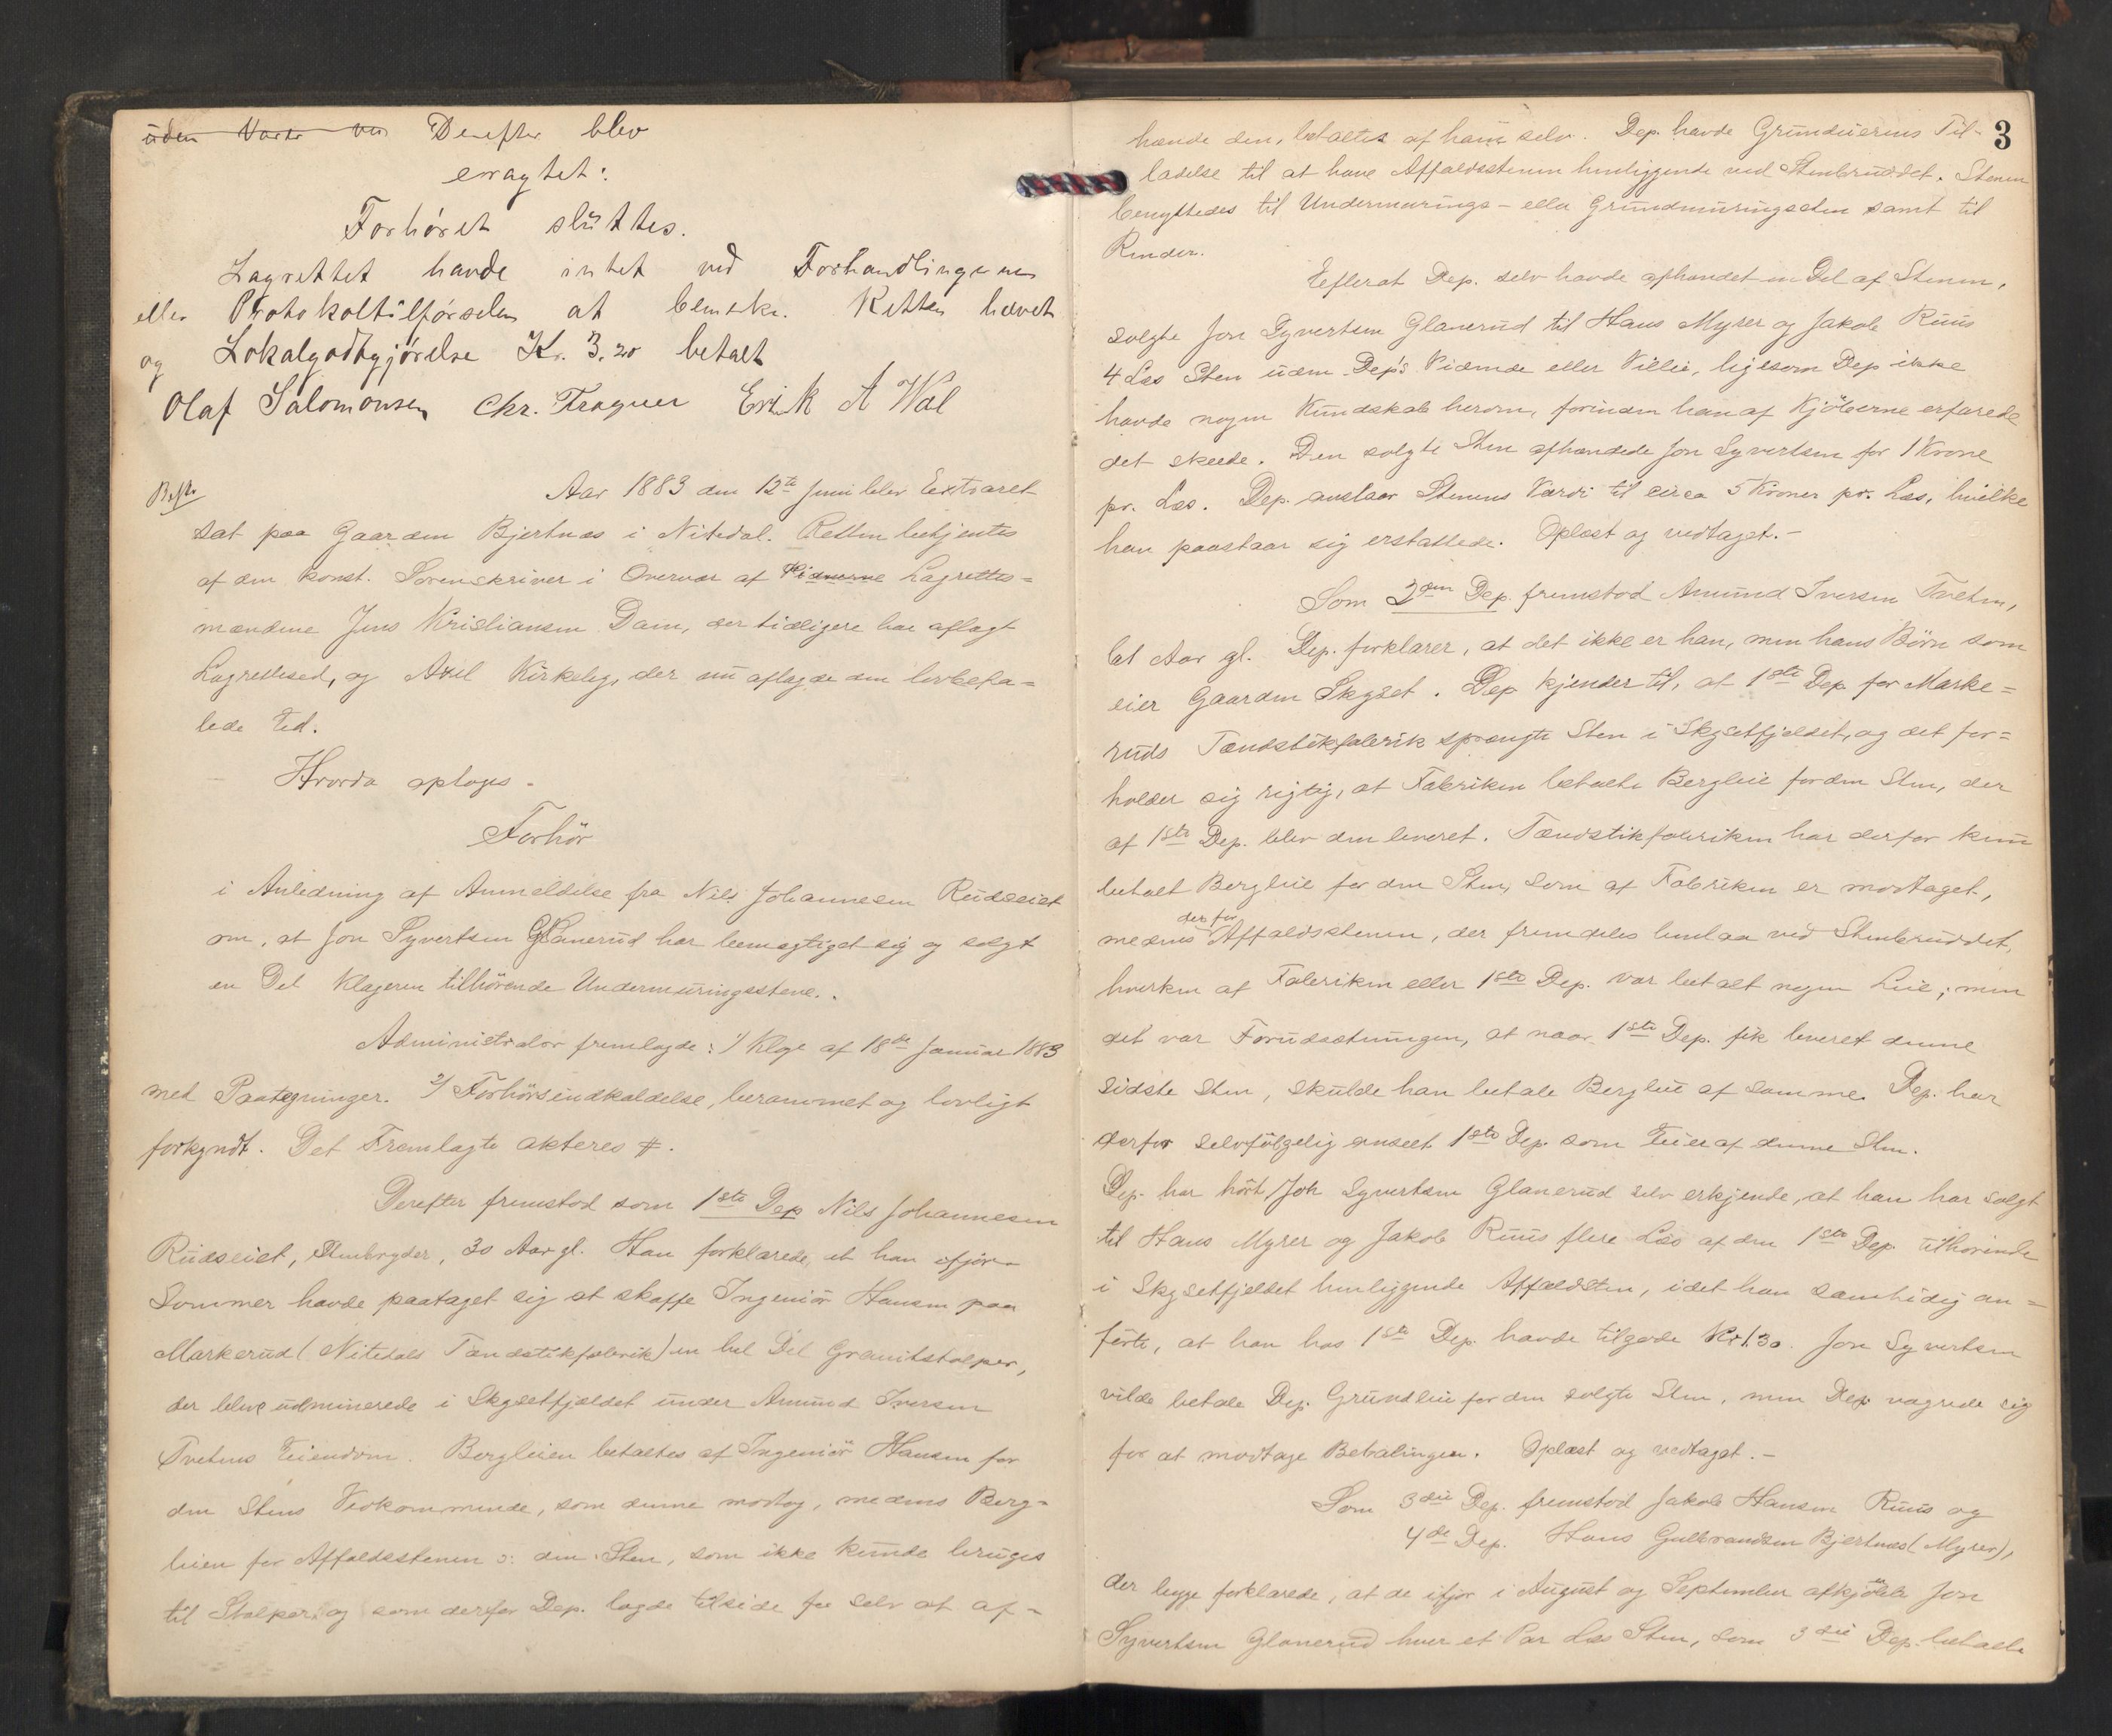 uden Varte ved Derefter blev
eragtet:
Forhøret sluttes.
Lagrettet havde intet ved Forhandlingerne
eller Protokoltilførselen at bemærke. Retten hævet
og Lokalgodtgjørelse Kr. 3.20 betalt
Olaf Salomonsen Chr. Fragner Erik A Wal
Aar 1883 den 12te Juni blev Extraret
sat paa Gaarden Bjertnæs i Nitedal. Retten betjentes
af den konst. Sorenskriver i Overvær af Vidnerne Lagrettes=
mændene Jens Kristiansen Dam, der tidligere har aflagt
Lagrettesed, og Axel Kirkeby, der nu aflagde den lovbefa=
lede Ed.
Hvorda optoges
Forhör
i Anledning af Anmeldelse fra Nils Johannesen Rudseiet
om, at Jon Syvertsen Glanerud har bemægtiget sig og solgt
en Del Klageren tilhörende Undermuringsstene.
Administrator fremlagde: 1) Klage af 18de Januar 1883
med Paategninger. 2) Forhörsindkaldelse, berammet og lovligt
forkyndt. Det Fremlagte akteres #.
Derefter fremstod som 1ste Dep Nils Johannesen
Rudseiet, Stenbryder, 30 Aar gl. Han forklarede, at han ifjor
Sommer havde paataget sig at skaffe Ingeniör Hansen paa
Markerud (Nitedals Tændstikfabrik) en hel Del Granitstolper,
der bleve udminerede i Skysetfjeldet under Amund Iversen
Tvetens Eiendom. Bergleien betaltes af Ingeniör Hansen for
den Stens Vedkommende, som denne modtog, medens Berg-
leien for Affaldsstenen ɔ: den Sten, som ikke kunde bruges
til Stolper og som derfor Dep. lagde tilside for selv at af-
3
hænde den, betaltes af ham selv. Dep. havde Grundeierens Til-
ladelse til at have Affaldsstenen henliggende ved Stenbruddet. Stenen
benyttedes til Undermurings- eller Grundmuringssten samt til
Render.
Efterat Dep. selv havde afhændet en Del af Stenen,
solgte Jon Syvertsen Glanerud til Hans Myrer og Jakob Ruus
4 Læs Sten uden Dep's Vidende eller Villie, ligesom Dep ikke
havde nogen Kundskab herom, forinden han af Kjöberne erfarede
det skeede. Den solgte Sten afhændede Jon Syvertsen for 1 Krone
pr. Læs. Dep. anslaar Stenens Værdi til circa 5 Kroner pr. Læs, hvilke
han paastaar sig erstattede. Oplæst og vedtaget.-
Som 2den Dep. fremstod Amund Iversen Tveten,
61 Aar gl. Dep. forklarer, at det ikke er han, men hans Börn som
eier Gaarden Skyset. Dep kjender til, at 1ste Dep for Marke=
ruds Tændstikfabrik sprængte Sten i Skysetfjeldet, og det for=
holder sig rigtig, at Fabriken betalte Bergleie for den Sten, der
af 1ste Dep. blev den leveret. Tændstikfabriken har derfor kun
betalt Bergleie for den Sten, som af Fabriken er modtaget,
medens der for Affaldsstenen, der fremdeles henlaa ved Stenbruddet,
hverken af Fabriken eller 1ste Dep. var betalt nogen Leie; men
det var Forudsætningen, at naar 1ste Dep. fik leveret denne
sidste Sten, skulde han betale Bergleie af samme. Dep. har
derfor selvfölgelig anseet 1ste Dep. som Eier af denne Sten.
Dep. har hört Jon Syvertsen Glanerud selv erkjende, at han har solgt
til Hans Myrer og Jakob Ruus flere Læs af den 1ste Dep. tilhörende
i Skysetfjeldet henliggende Affaldsten, idet han samtidig an=
förte, at han hos 1ste Dep. havde tilgode Kr 1.30. Jon Syvertsen
vilde betale Dep. Grundleie for den solgte Sten, men Dep vægrede sig
for at modtage Betalingen. Oplæst og vedtaget.-
Som 3die Dep. fremstod Jakob Hansen Ruus og
4de Dep. Hans Gulbrandsen Bjertnæs (Myrer),
der begge forklarede, at de ifjor i August og September afkjöbte Jon
Syvertsen Glanerud hver et Par Læs Sten, som 3die Dep. betalte